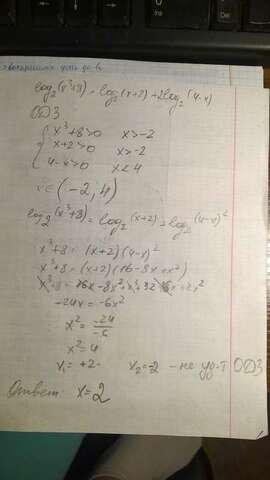 log₂(x³+8) = log₂(x+2)+2log₂(4-x)
ОДЗ
{ x³+8>0 x>-2
x+2>0 x>-2
4-x>0 x<4
x∈(-2, 4)
log₂(x³+8) = log₂(x+2)+log₂(4-x)²
x³+8 = (x+2)(4-x)²
x³+8 = (x+2)(16-8x+x²)
x³+8 = 16x-8x²+x³+32-16x+2x²
-24x = -6x²
x² = -24/-6
x² = 4
x₁ = +2 x₂=-2 - не уд-т ОДЗ
Ответ x=2